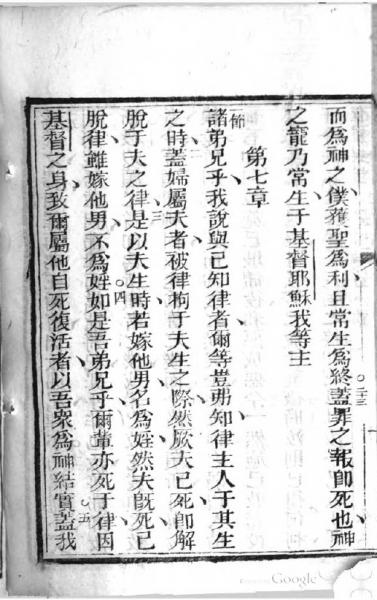 而爲神之僕獲聖爲利且常生爲終蓋罪之報卽死也神
二十三
之寵乃常生于基督耶穌我等主
第七章
節
諸弟兄乎我說與已知律者爾等豈弗知律主人于其生
之時蓋婦屬夫者被律拘于夫生之際然厥夫已死卽解
二
脫于夫之律是以夫生時若嫁他男名爲婬然夫旣死已
三
脫律雖嫁他男不爲婬如是吾弟兄乎爾輩亦死于律因
四
基督之身致爾屬他自死復活者以吾衆爲神結實蓋我
五
Google